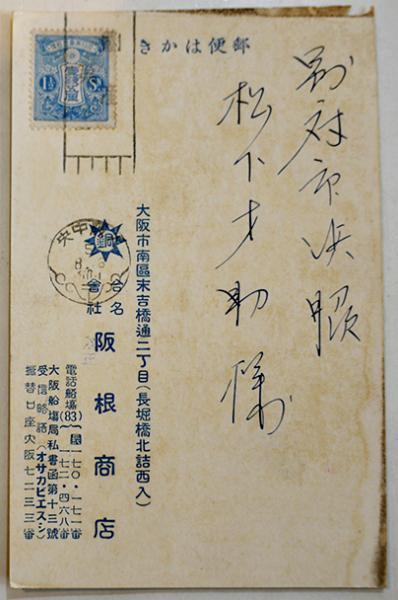 郵便は가き
別府市浜脇
松下才助様
大阪市南區末吉橋通二丁目(長堀橋北詰西入)
合名會社
阪根商店
電話船場(83)
一七〇・一七一番
一七二・四六八番
大阪船場局私書函第十三號
受信略語(オサカビエスシ)
振替口座大阪七二三三番
1½ Sn
中央